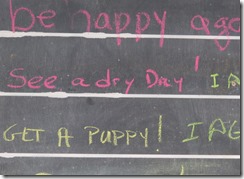 be happy
See a dry Day! I
GET A PUPPY! I AG